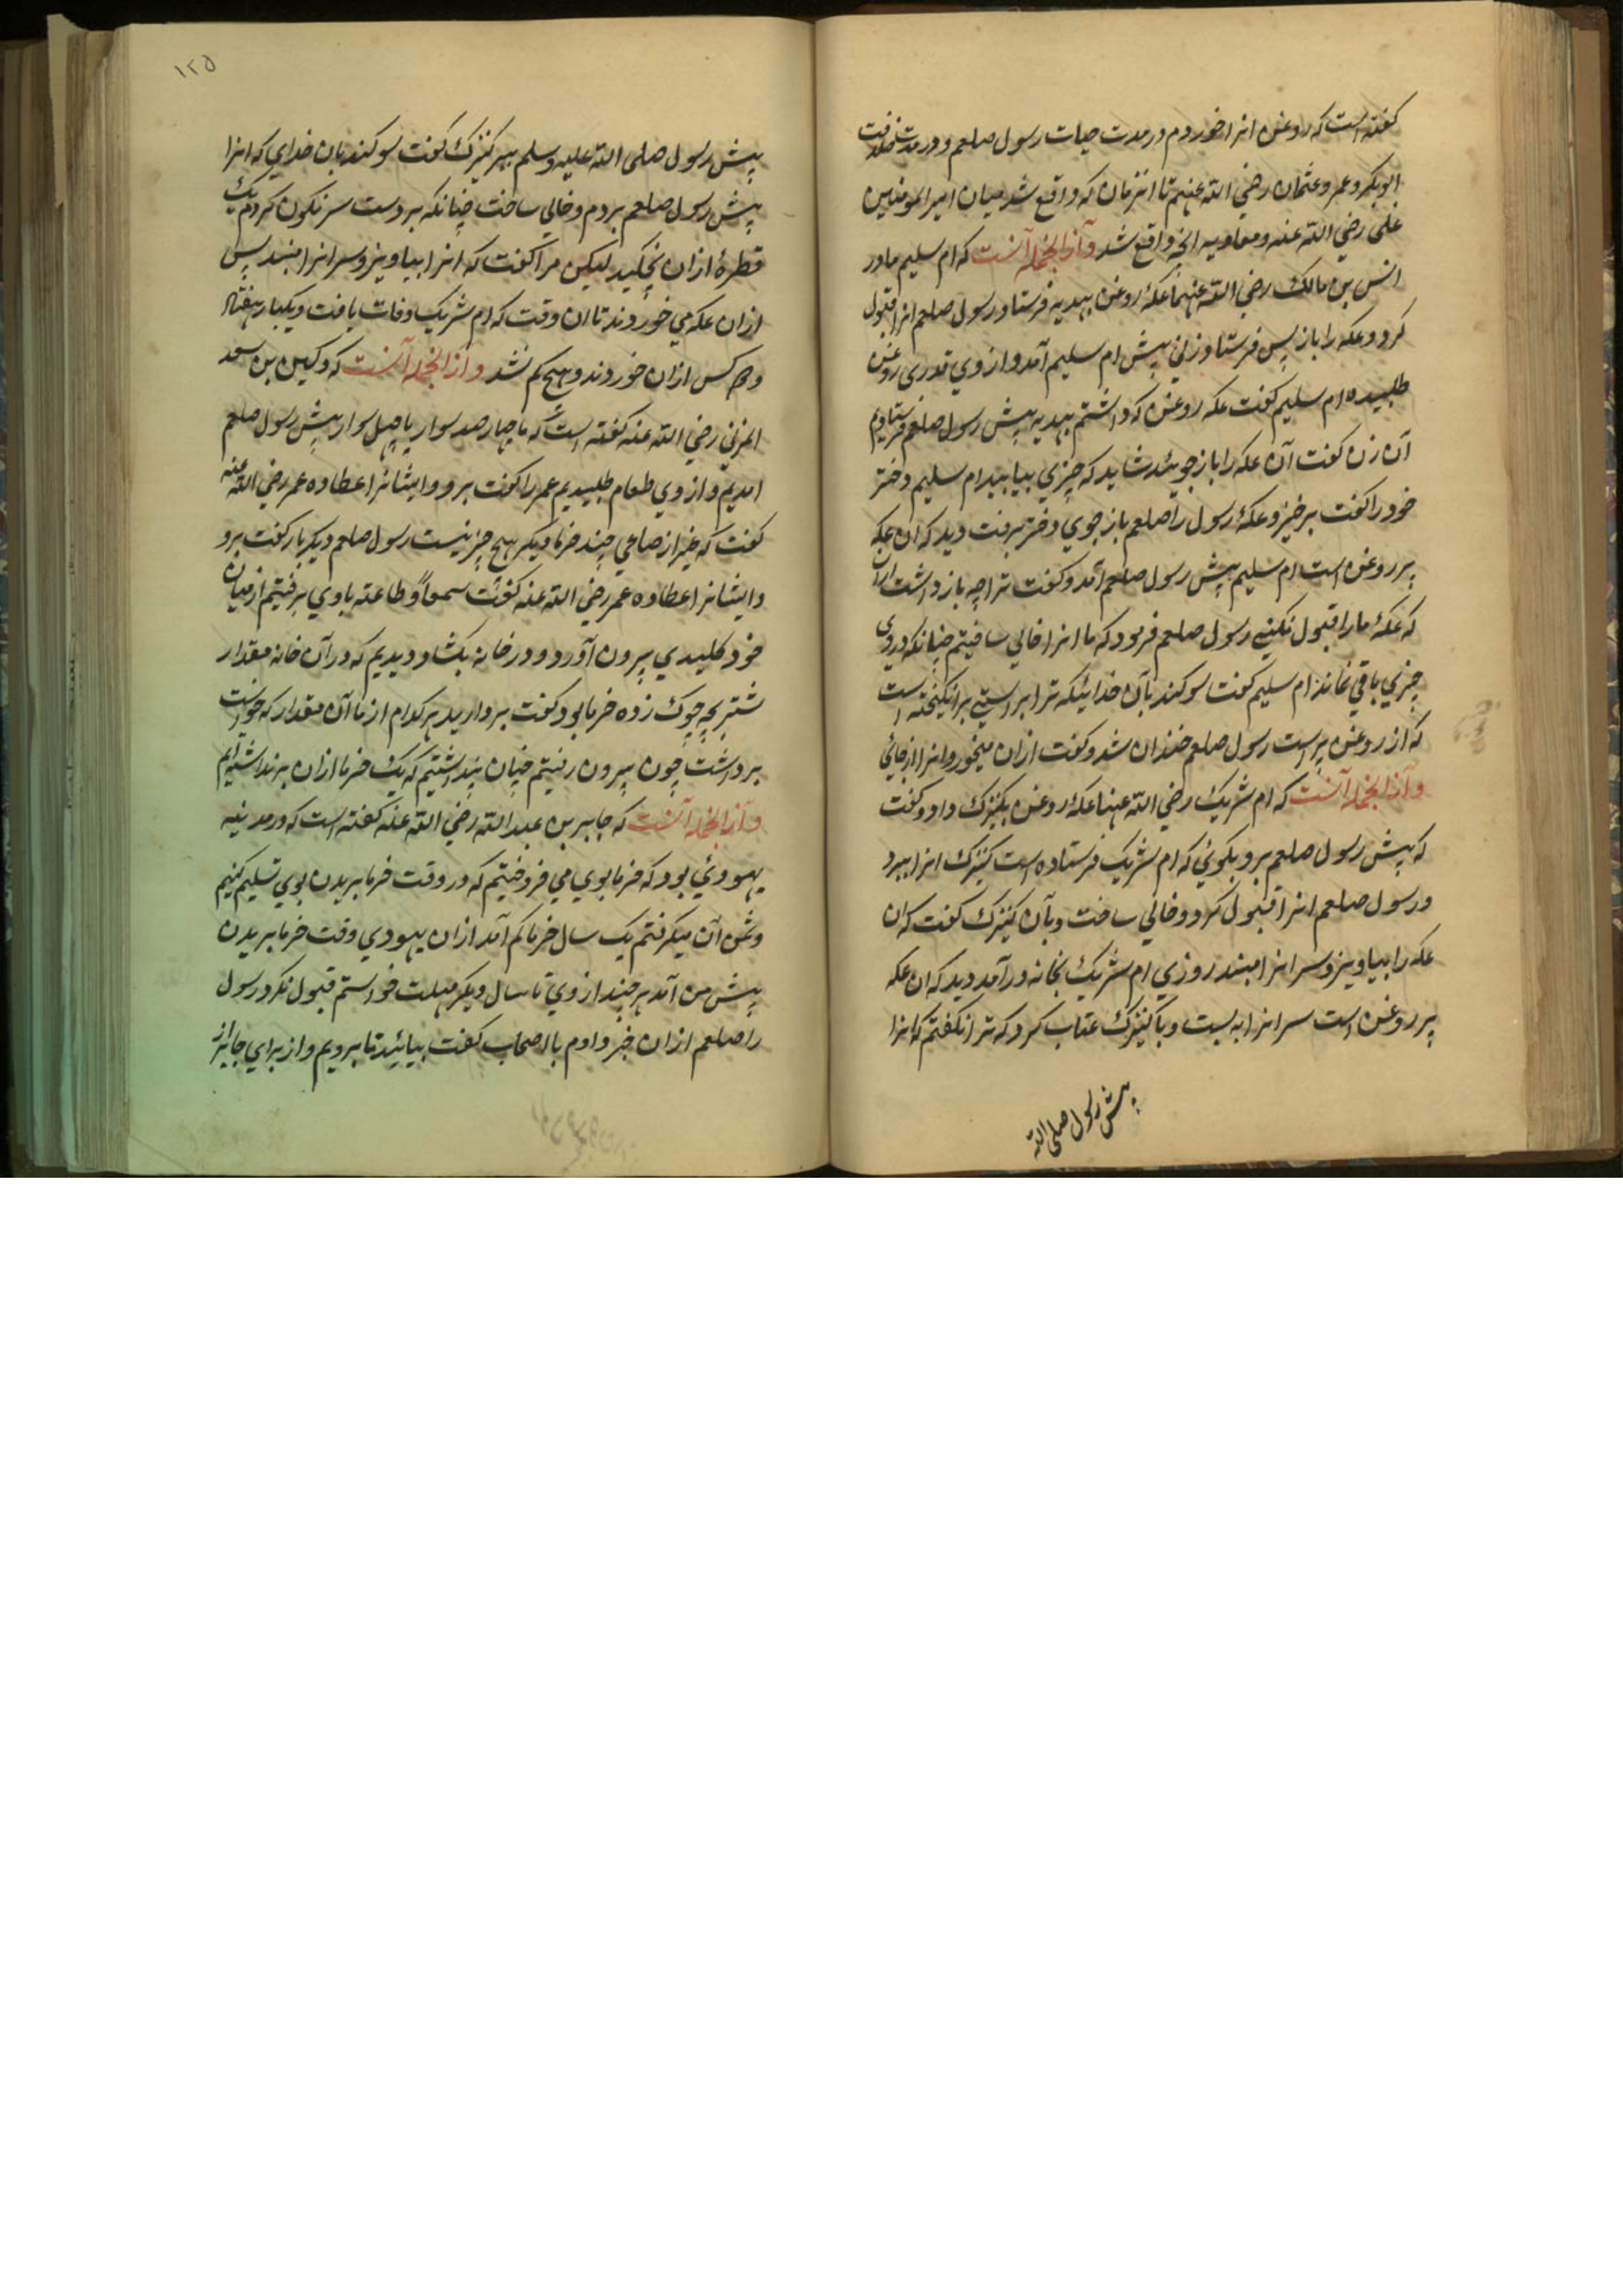 کفته است که روغن انرا خوردم در مدت حیات رسول صلعم و در مدت خلافت
ابوبکر و عمر و عثمان رضي الله عنهم تا انزمان که واقع شد میان امیر المومنین
علی رضي الله عنه و معاویه انچه واقع شد و آز انجمله آنست که ام سلیم مادر
انس بن مالک رضي الله عنهما عکهٔ روغن بهدیه فرستاد رسول صلعم انرا قبول
کرد و عکه را باز پس فرستاد زني پیش ام سلیم آمد و از وي قدری روغن
طلبیده ام سلیم کفت عکه روغن که داشتم بهدیه پیش رسول صلعم فرستادم
آن زن کفت آن عکه را باز جوئید شاید که چیزي بیابید ام سلیم دختر
خود را کفت برخیز و عکهٔ رسول را صلعم باز جوي دختر برفت دید که ان عکه
پر روغن است ام سلیم پیش رسول صلعم آمد و کفت ترا چه باز داشت ازان
که عکهٔ ما را قبول نکني رسول صلعم فرمود که ما انرا خالي ساختیم چنانکه دروي
چیزي باقي نماند ام سلیم کفت سوکند بآن خدائیکه ترا براستي برانکیخته است
که از روغن پر است رسول صلعم خندان شد و کفت ازان میخور و انرا از جائی
و آز انجمله آنست که ام شریک رضي الله عنها عکهٔ روغن بکنیزک داد و کفت
که پیش رسول صلعم برو بکوئي که ام شریک فرستاده است کنیزک انرا ببرد
و رسول صلعم انرا قبول کرد و خالي ساخت و بآن کنیزک کفت که ان
عکه را بیاویز و سر انرا مبند روزي ام شریک بخانه در آمد دید که ان عکه
پر روغن است سر انرا به بست و با کنیزک عتاب کرد که ترا نکفتم که انرا
پیش رسول صلی الله
١٢٥
پیش رسول صلی الله علیه و سلم ببر کنیزک کفت سوکند بان خداي که انرا
پیش رسول صلعم بردم و خالي ساخت چنانکه بر دست سر نکون کردم یک
قطرهٔ ازان نچکید لیکن مرا کفت که انرا بیاویز و سر انرا مبند پس
ازان عکه مي خوردند تا ان وقت که ام شریک وفات یافت و یکبار هفتاد
و کس ازان خوردند و هیچ کم نشد و آز انجمله آنست که دکین بن سعد
المزني رضي الله عنه کفته است که ما چهار صد سوار یا چهل سوار پیش رسول صلعم
امدیم و از وي طعام طلبیدیم عمر را کفت برو و ایشانرا عطا ده عمر رضي الله عنه
کفت که غیر از صاعي چند خرما دیکر هیچ چیز نیست رسول صلعم دیکر بار کفت برو
و ایشانرا عطا ده عمر رضي الله عنه کفت سمعاً و طاعته با وي برفتیم از میان
خود کلیدي بیرون آورد و در خانه بکشاد دیدیم که در آن خانه مقدار
شتر بچه چوک زده خرما بود کفت بردارید هر کدام از ما آن مقدار که خواست
برداشت چون بیرون رفتیم چنان پنداشتیم که یک خرما ازان بر نداشته ایم
و آز انجمله آنست که جابر بن عبد الله رضي الله عنه کفته است که در مدینه
یهودئي بود که خرما بوي مي فروختم که در وقت خرما بریدن بوي تسلیم کنیم
و ثمن آن میکرفتم یک سال خرما کم آمد ازان یهودي وقت خرما بریدن
پیش من آمد هر چند از وي تا سال دیکر مهلت خواستم قبول نکرد رسول
را صلعم ازان خبر دادم با اصحاب کفت بیائید تا برویم و از براي جابر از